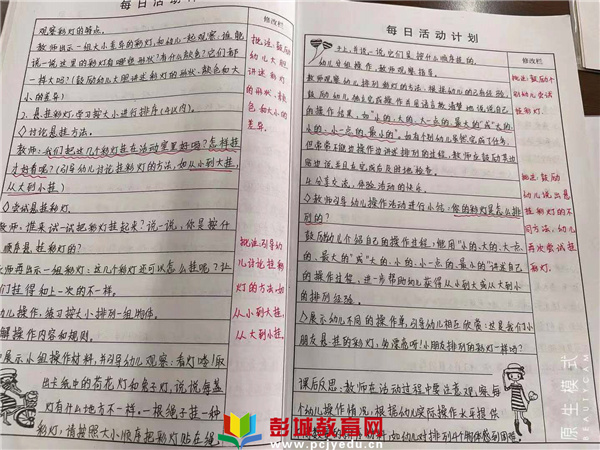 每日活动计划
修改栏
观察彩灯的特点。
教师出示一组大小差异的彩灯,如幼儿一起观察,谁能
说一说这里的彩灯有哪些形状?有什么颜色?它们都
一样大吗?(鼓励幼儿大胆讲述彩灯的形状、颜色和大
小的差异)
2、悬挂彩灯,学习按大小进行排序(4以内)。
◇讨论悬挂方法。
教师:我们把这几个彩灯挂在活动室里好吗?怎样挂
才好看呢?(引导幼儿讨论挂彩灯的方法,如从小到大挂,
从大到小挂)
◇尝试悬挂彩灯。
教师:谁来试一试把彩灯挂起来?说一说,你是按什
顺序悬挂彩灯的?
师再出示一组彩灯:这几个彩灯还可以怎么挂呢?让
们挂得和上一次的不一样。
幼儿操作,练习按大小排列一组物体。
解操作内容和规则。
展示小组操作材料,并引导幼儿观察:看灯啦!取
出卡纸中的荷花灯和兔子灯,说说每盏
灯有什么地方不一样,一根绳子挂一种
彩灯,请按照大小顺序把彩灯贴在绳
批注:鼓励
幼儿大胆
讲述彩灯
的形状、颜
色和大小的
差异。
批注:引导幼
儿讨论挂彩
灯的方法,如
从小到大挂,
从大到小挂。
每日活动计划
修改栏
子上,再说一说它们是按什么顺序挂的。
幼儿分组操作,教师观察指导。
教师观察幼儿排列彩灯的方法,根据幼儿的已有经验,
鼓励幼儿独立完成操作并用语言较清楚地说说自己
的操作结果,如“小的、大的、大一点的、最大的”或“大的、
小的、小一点的、最小的”,如有个别幼儿虽然完成了任务,
但常常不能边操作边讲述排列的过程,教师应鼓励其边
做边说并且在完成后及时地检查。
4、分享交流,体验活动的快乐。
◇教师引导幼儿操作活动进行小结:你的彩灯是怎么排
列的?
鼓励幼儿介绍自己的操作过程,能用“小的、大的、大一点
的、最大的”或“大的、小的、小一点的、最小的”讲述自己
的操作过程,进一步帮助幼儿获得从小到大或从大到小
的排列经验。
◇展示幼儿不同的操作单,引导幼儿相互欣赏:这是我们小
朋友悬挂的彩灯,多漂亮呀!小朋友排列的彩灯一样吗?
课后反思:教师在活动过程中要注意观察每
个幼儿操作情况,根据幼儿实际操作水平提供
材料,如幼儿对排列4个物体感到困难,
批注:鼓励个
别幼儿尝试
挂彩灯。
批注:鼓励
幼儿说出悬
挂彩灯的不
同方法,幼儿
再次尝试挂
彩灯。
原生模式
BEAUTYCAM
彭城教育网
www.pcjyedu.com